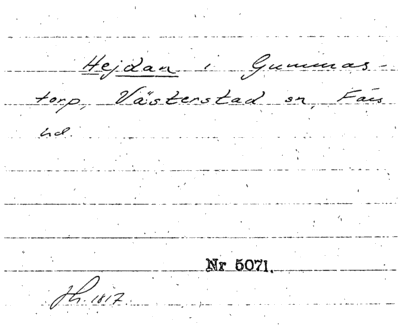 Hejdan i Gummas-
torp, Västerstad sn, Färs
hd.
Nr 5071.
Jh. 1817.